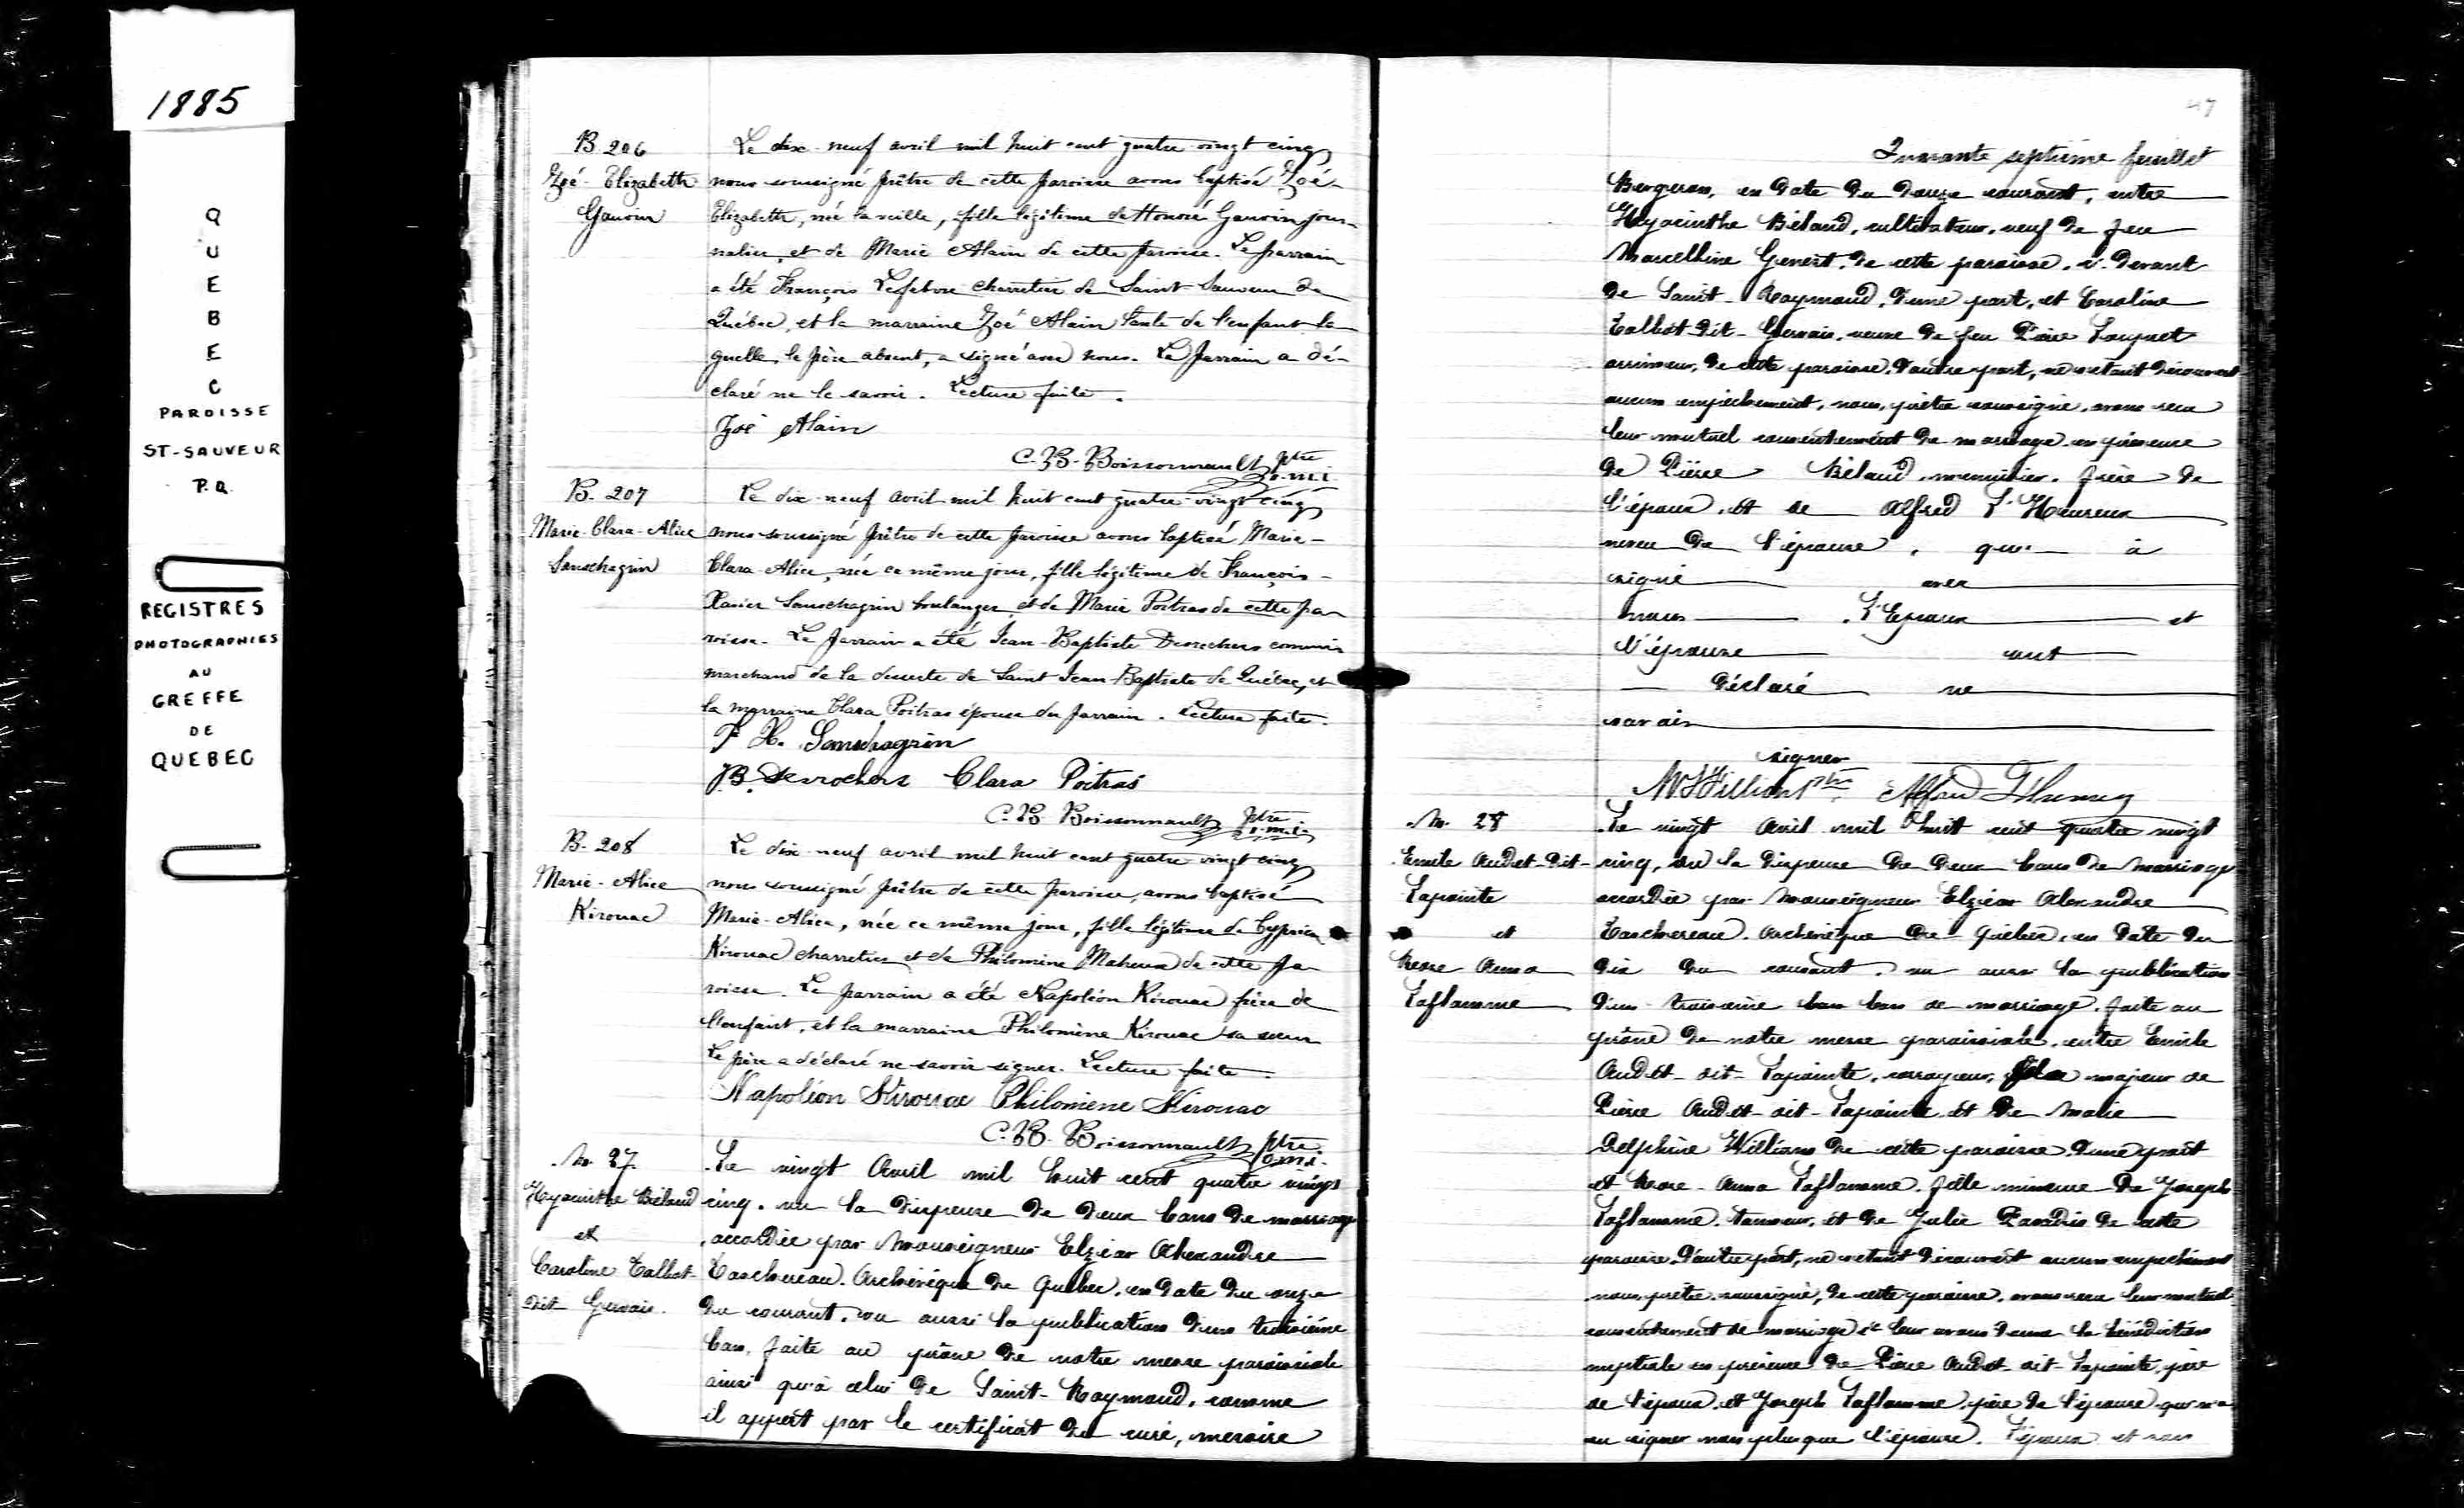 1885
QUEBEC
PAROISSE
ST-SAUVEUR
P.Q.
REGISTRES
PHOTOGRAPHIES
AU
GREFFE
DE
QUEBEC
B. 206
Zoé-Elizabeth
Gauvin
Le dix-neuf avril mil huit cent quatre-vingt cinq
nous soussigné prêtre de cette paroisse avons baptisé Zoé-
Elizabeth, née la veille, fille légitime de Honoré Gauvin jour-
nalier, et de Marie Alain de cette paroisse. Le parrain
a été François Lefebvre charretier de Saint Sauveur de
Québec, et la marraine Zoé Alain tante de l'enfant la-
quelle, le père absent, a signé avec nous. Le parrain a dé-
claré ne le savoir. Lecture faite.
Zoé Alain
C. B. Boissonnault ptre
o.m.i.
B. 207
Marie-Clara-Alice
Sanschagrin
Le dix-neuf avril mil huit cent quatre-vingt cinq
nous soussigné prêtre de cette paroisse avons baptisé Marie-
Clara-Alice, née ce même jour, fille légitime de François-
Xavier Sanschagrin boulanger, et de Marie Poitras de cette pa-
roisse. Le parrain a été Jean-Baptiste Desrochers commis
marchand de la desserte de Saint Jean-Baptiste de Québec, et
la marraine Clara Poitras épouse du parrain. Lecture faite.
F X. Sanschagrin
J.B. Desrochers Clara Poitras
C. B. Boissonnault ptre
o.m.i.
B. 208
Marie-Alice
Kirouac
Le dix-neuf avril mil huit cent quatre vingt cinq
nous soussigné prêtre de cette paroisse, avons baptisé
Marie-Alice, née ce même jour, fille légitime de Cyprien
Kirouac charretier, et de Philomène Maheux de cette pa-
roisse. Le parrain a été Napoléon Kirouac frère de
l'enfant, et la marraine Philomène Kirouac sa sœur
Le père a déclaré ne savoir signer. Lecture faite.
Napoléon Kirouac Philomène Kirouac
C. B. Boissonnault ptre
o.m.i.
M. 27.
Hyacinthe Béland
et
Caroline Talbot-
dit Gervais.
Le vingt Avril mil huit cent quatre vingt
cinq. vu la dispense de deux bans de marriage
accordée par Monseigneur Elzéar Alexandre
Taschereau. Archevêque de Québec, en date du onze
du courant. vu aussi la publication d'un troisième
ban, faite au prône de notre messe paroissiale
ainsi qu'à celui de Saint-Raymond, comme
il appert par le certificat du curé, messire
47
Quarante septième feuillet
Bergeron, en date du douze courant, entre
Hyacinthe Béland, cultivateur, veuf de feu
Marcelline Genest, de cette paroisse, ci-devant
de Saint-Raymond, d'une part, et Caroline
Talbot-dit-Gervais, veuve de feu Pierre Paquet
arrimeur, de cette paroisse, d'autre part, ne s'étant découvert
aucun empêchement, nous, prêtre soussigné, avons reçu
leur mutuel consentement de marriage en présence
de Pierre Béland, menuisier, frère de
l'époux, et de Alfred L'Heureux
neveu de l'épouse, qui a
signé avec
nous L'Epoux et
l'épouse ont
déclaré ne
savoir
signer
Alfred L'Heureux
M. 28
Emile Audet-dit-
Lapointe
et
Rose Anna
Laflamme
Le vingt Avril mil huit cent quatre vingt
cinq, vu la dispense de deux bans de marriage
accordée par Monseigneur Elzéar Alexandre
Taschereau. Archevêque de Québec, en date du
dix du courant. vu aussi la publication
d'un troisième ban ban de marriage, faite au
prône de notre messe paroissiale, entre Emile
Audet-dit-Lapointe, corroyeur, fils majeur de
Pierre Audet-dit-Lapointe et de Marie
Delphine Williams de cette paroisse, d'une part
et Rose-Anna Laflamme, fille mineure de Joseph
Laflamme, tanneur, et de Julie Paradis de cette
paroisse, d'autre part, ne s'étant découvert aucun empêchement
nous, prêtre, soussigné, de cette paroisse, avons reçu leur mutuel
consentement de marriage et leur avons donné la bénédiction
nuptiale en présence de Pierre Audet-dit-Lapointe, père
de l'époux, et Joseph Laflamme, père de l'épouse, qui n'a
su signer non plus que l'épouse. L'époux et